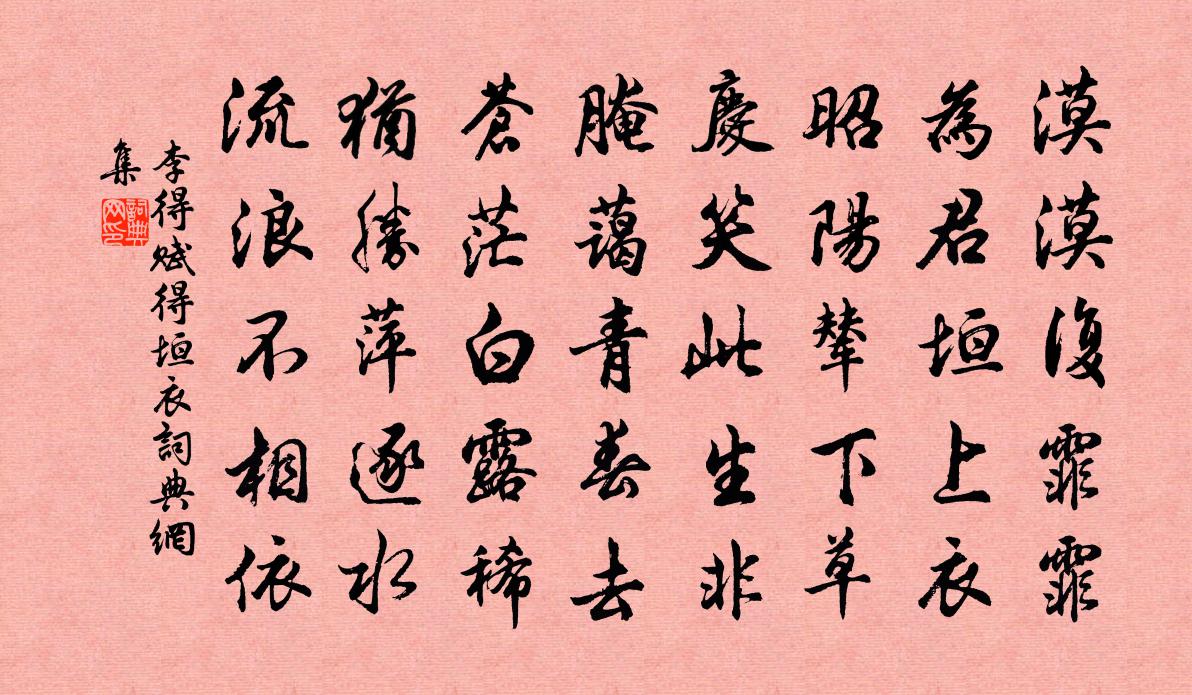 漠漠復霏霏
為君垣上衣
昭陽輦下草
慶笑此生非
腌藹青春去
蒼茫白露稀
猶勝萍逐水
流浪不相依
李得賦得垣衣詞典網
集
詞典
网印